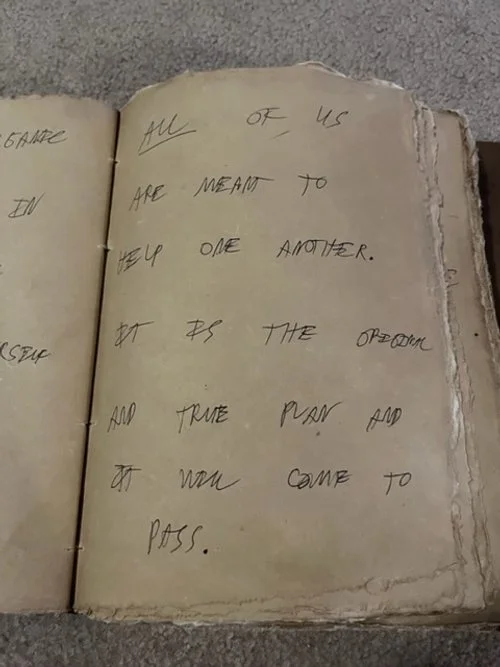 IN
ALL OF US
ARE MEANT TO
HELP ONE ANOTHER.
IT IS THE ORIGINAL
AND TRUE PLAN AND
IT WILL COME TO
PASS.